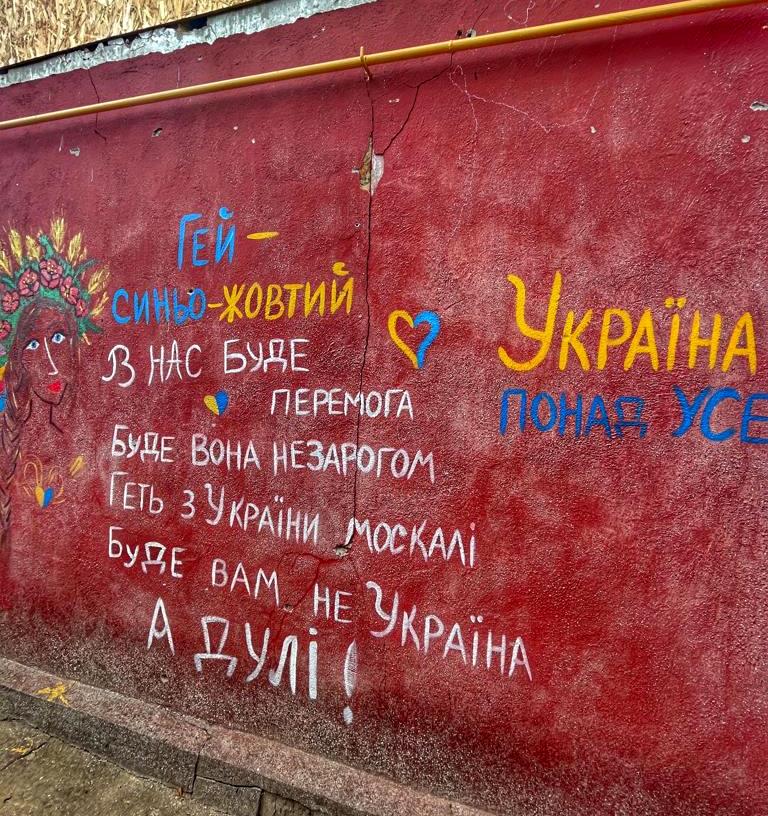 Гей –
синьо-жовтий
В нас буде
перемога
Буде вона незарогом
Геть з України москалі
Буде вам не Україна
А дулі!
Україна
понад усе